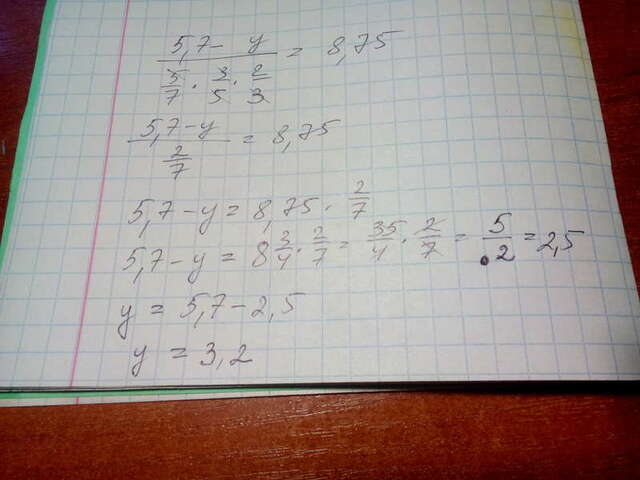 (5,7 - y) / (5/7 · 3/5 · 2/3) = 8,75
(5,7 - y) / (2/7) = 8,75
5,7 - y = 8,75 · 2/7
5,7 - y = 8 3/4 · 2/7 = 35/4 · 2/7 = 5/2 = 2,5
y = 5,7 - 2,5
y = 3,2